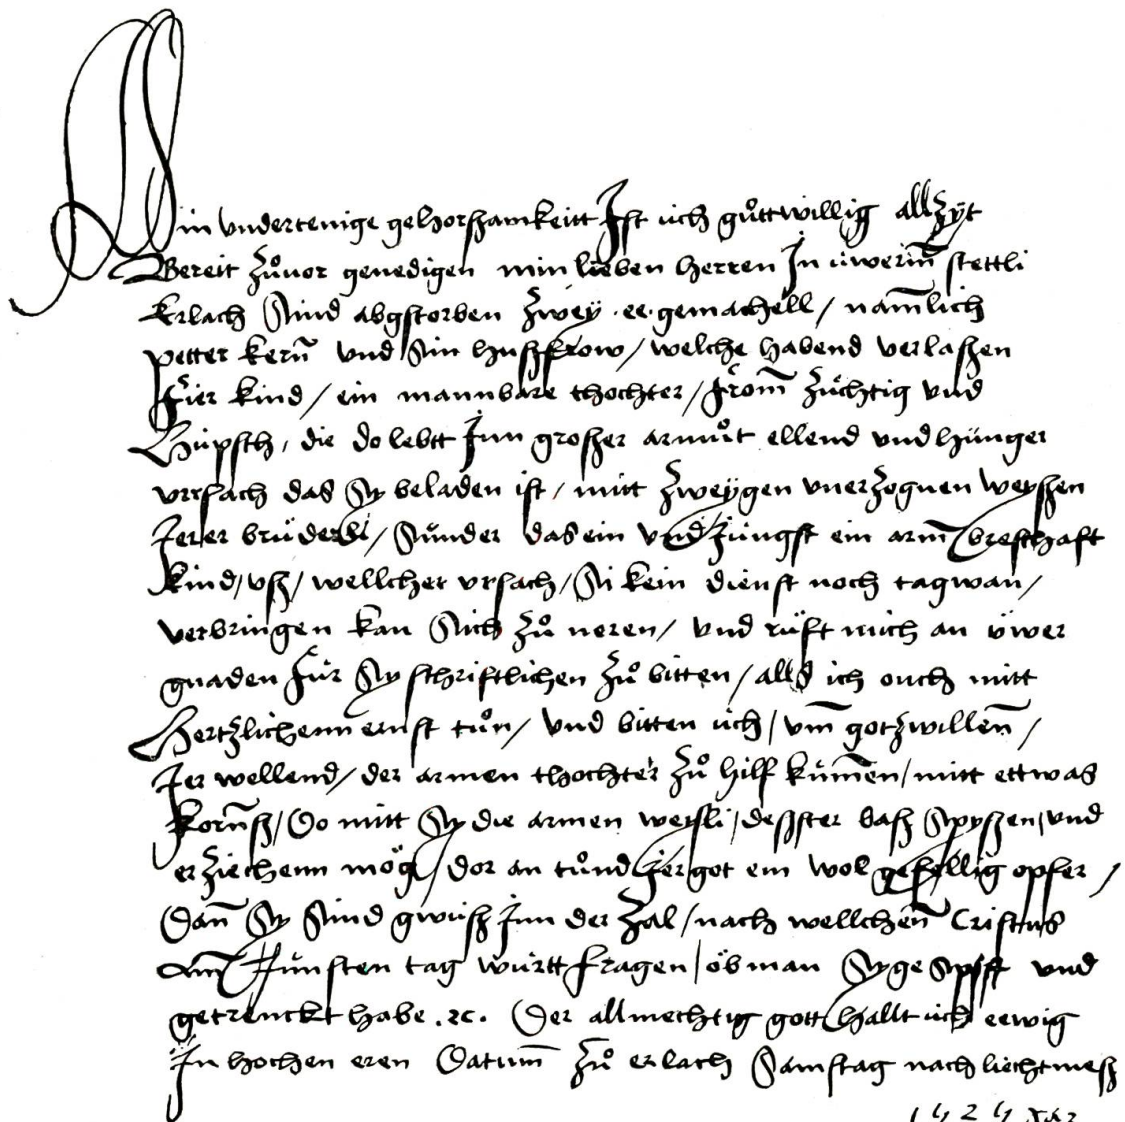 Min vndertenige gehorszamkeitt Ist üch gůttwillig allzÿt
Bereit zůuor genedigen min lieben herren In üwerm̄ stettli
Erlach Sind abgstorben zwey ee gemachell / nam̄lich
petter kern̄ vnd Sin huszfrow / welche habend verlaszen
Fier kind / ein mannbare thochter / from̄ züchtig vnd
Hüpsch, die do lebtt Inn groszer armůt ellend vnd hünger
vrsach das Sy beladen ist / mitt zweÿgen vnerzognen weyszen
Jerer brüderli / Sünder das ein vnd jüngst ein arm̄ bresthaft
kind / vsz / wellcher vrsach / Si kein dienst noch tagwan /
verbringen kan Sich zů neren / vnd rüft mich an üwer
gnaden Für Sy schriftlichen zů bitten / alls ich ouch mitt
Hertzlichenn ernst tůn / vnd bitten üch / vm̄ gotzwillen̄ /
Jer wellend / der armen thochter zů hilf küm̄en / mitt ettwas
korn̄sz / Do mitt Sy die armen weysli / desster basz Spyszen / vnd
erziechenn mög / dor an tůnd jer got ein wol gefellig opfer /
Dan̄ Sy Sind gwüsz Inn der zal / nach wellchen̄ Cristus
Am̄ Jünsten tag württ fragen / öb man Sy gespyst vnd
getrenckt habe .ꝛc. Der allmechtig gott hallt üch eewig
In hochen eren Datum̄ zů erlach Samstag nach liechtmesz
1525 Jar